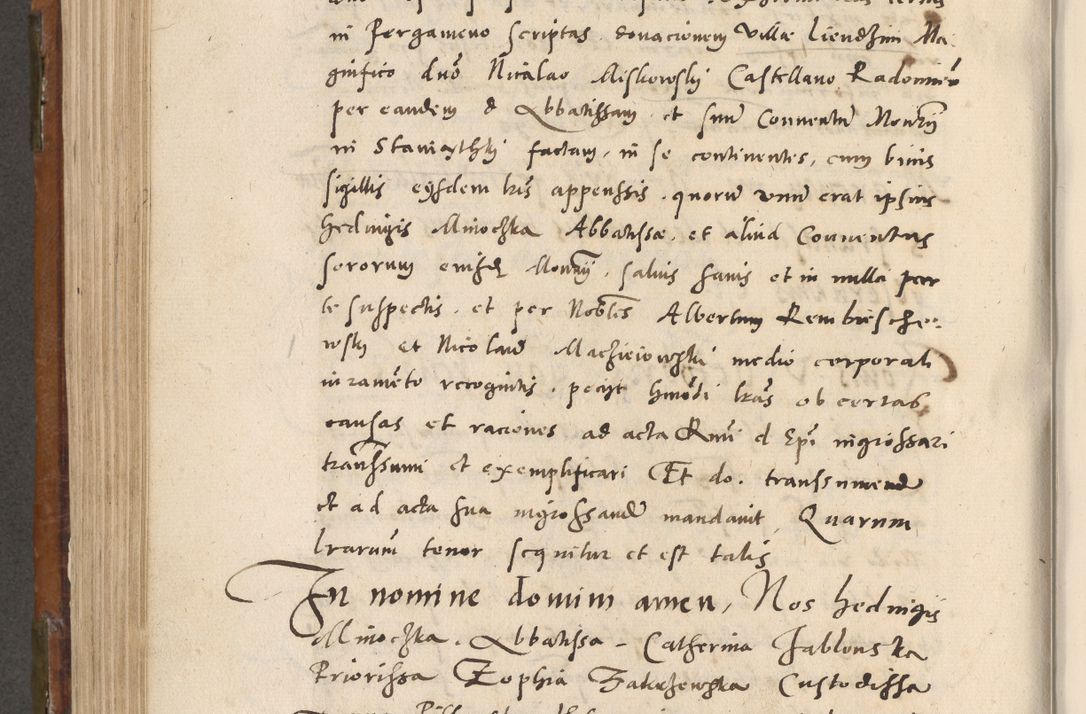 in Pergameno scriptas donacionem Villæ Liendzim Ma
gnifico dnō Nicalao Miskowskÿ Castellano Radomień
per eandem d Abbatissam et suū Conuentū Monrÿ
in Staniąthkÿ factam, in se continentes, cum binis
sigillis eÿsdem lrīs appenssis, quorū vnū erat ipsius
hedwigis Minoczka Abbatissæ, et aliud Conuentus
sororum eiusd Monrÿ, saluis sanis et in nulla par
te suspectis, et per Nobiles Albertum Rembiesche=
wskÿ et Nicolaū Maczieiowskÿ medio corporali
iuramēto recognitis, peciit hmōdi lrās ob certas
causas et raciones ad acta Rmī d Epī ingrossari
transsumi et exemplificari Et do. transsumend
et ad acta sua ingrossand mandauit Quarum
lrarum tenor sequitur et est talis
In nomine domini amen, Nos hedwigis
Minoczka, Abbatissa - Catherina Jablonska
Priorissa Zophia Zakrzewska Custodissa